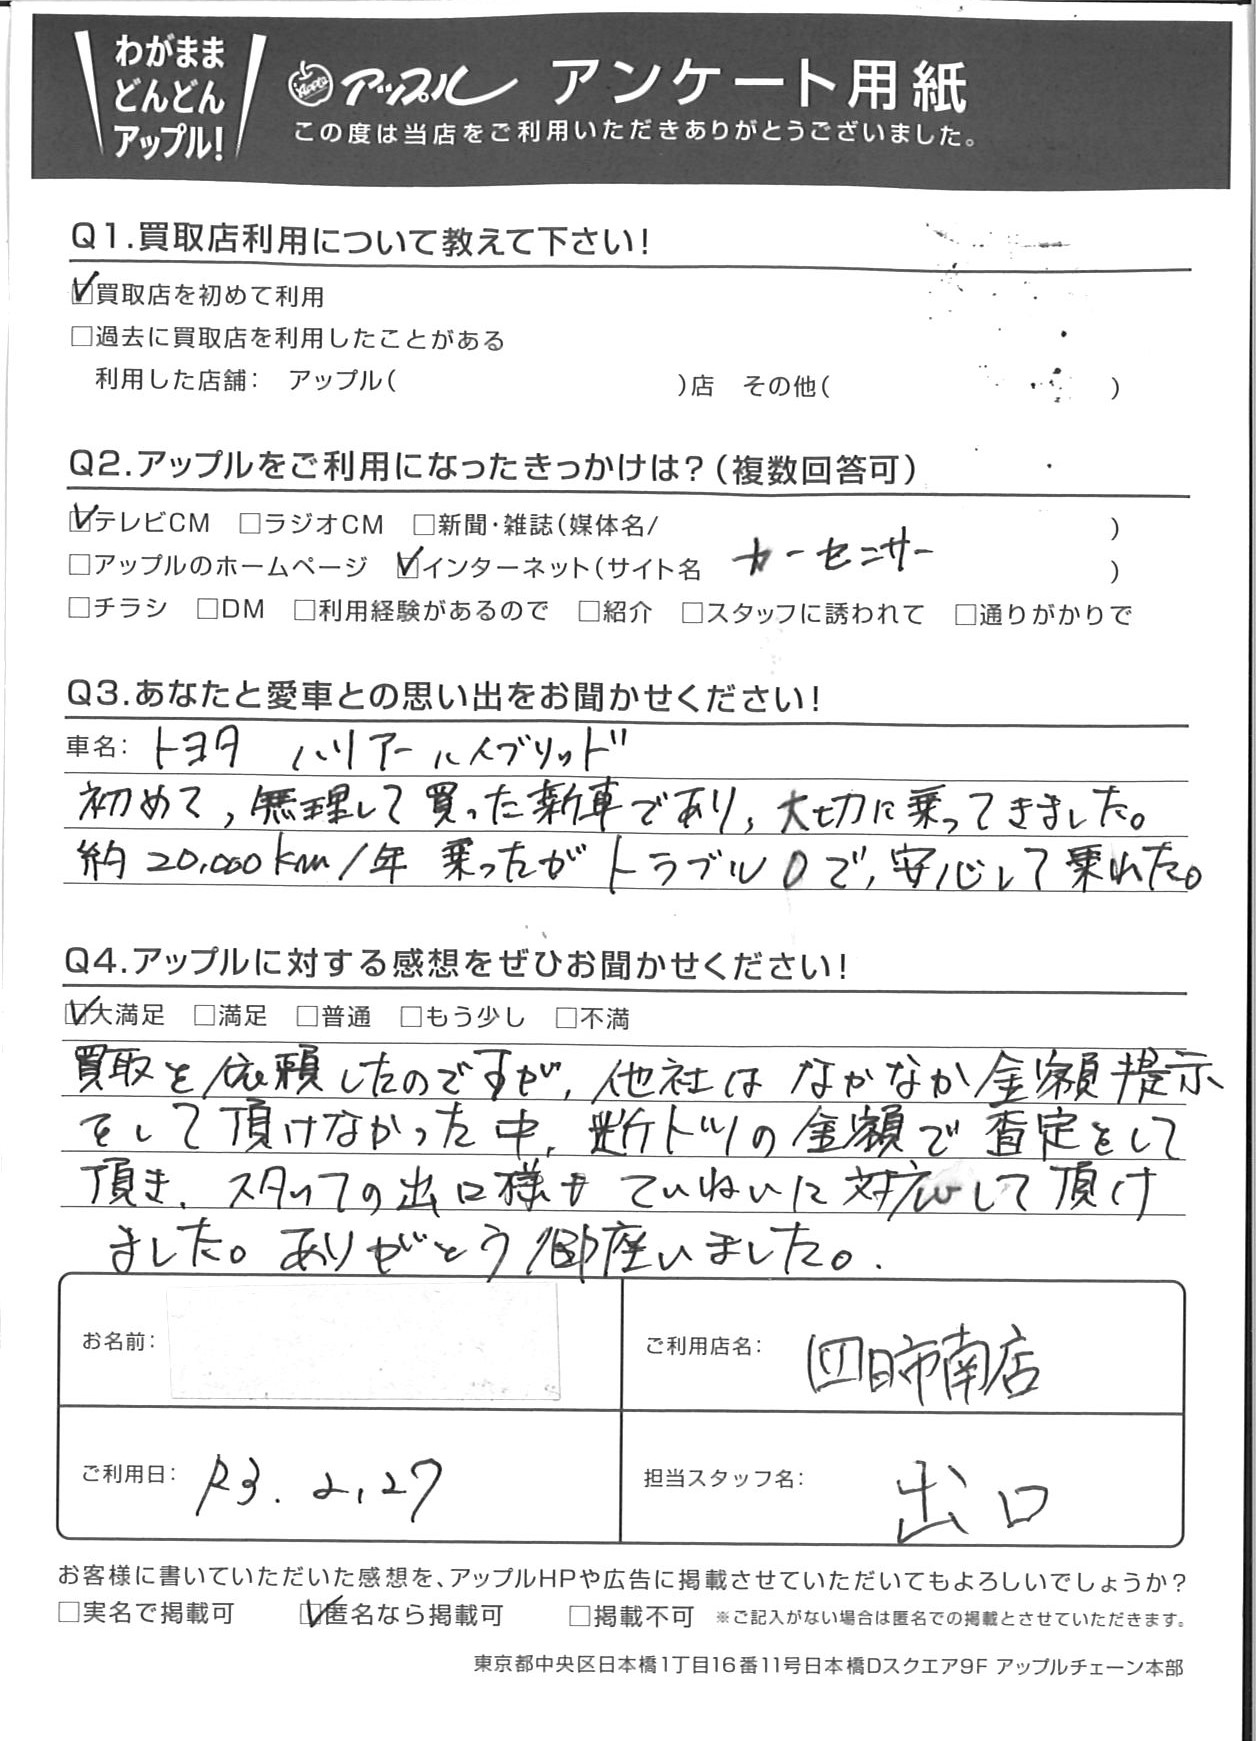 わがまま
どんどん
アップル!
Apple アップル アンケート用紙
この度は当店をご利用いただきありがとうございました。
Q1.買取店利用について教えて下さい!
☑買取店を初めて利用
□過去に買取店を利用したことがある
利用した店舗: アップル( )店 その他( )
Q2.アップルをご利用になったきっかけは?(複数回答可)
☑テレビCM □ラジオCM □新聞・雑誌(媒体名/ )
□アップルのホームページ ☑インターネット(サイト名 カーセンサー )
□チラシ □DM □利用経験があるので □紹介 □スタッフに誘われて □通りがかりで
Q3.あなたと愛車との思い出をお聞かせください!
車名: トヨタ ハリアーハイブリッド
初めて、無理して買った新車であり、大切に乗ってきました。
約20,000km/年 乗ったがトラブル0で、安心して乗れた。
Q4.アップルに対する感想をぜひお聞かせください!
☑大満足 □満足 □普通 □もう少し □不満
買取を依頼したのですが、他社はなかなか金額提示
をして頂けなかった中、断トツの金額で査定をして
頂き、スタッフの出口様もていねいに対応して頂け
ました。ありがとう御座いました。
お名前: ご利用店名: 四日市南店
ご利用日: R3.2.27 担当スタッフ名: 出口
お客様に書いていただいた感想を、アップルHPや広告に掲載させていただいてもよろしいでしょうか?
□実名で掲載可 ☑匿名なら掲載可 □掲載不可 ※ご記入がない場合は匿名での掲載とさせていただきます。
東京都中央区日本橋1丁目16番11号日本橋Dスクエア9F アップルチェーン本部